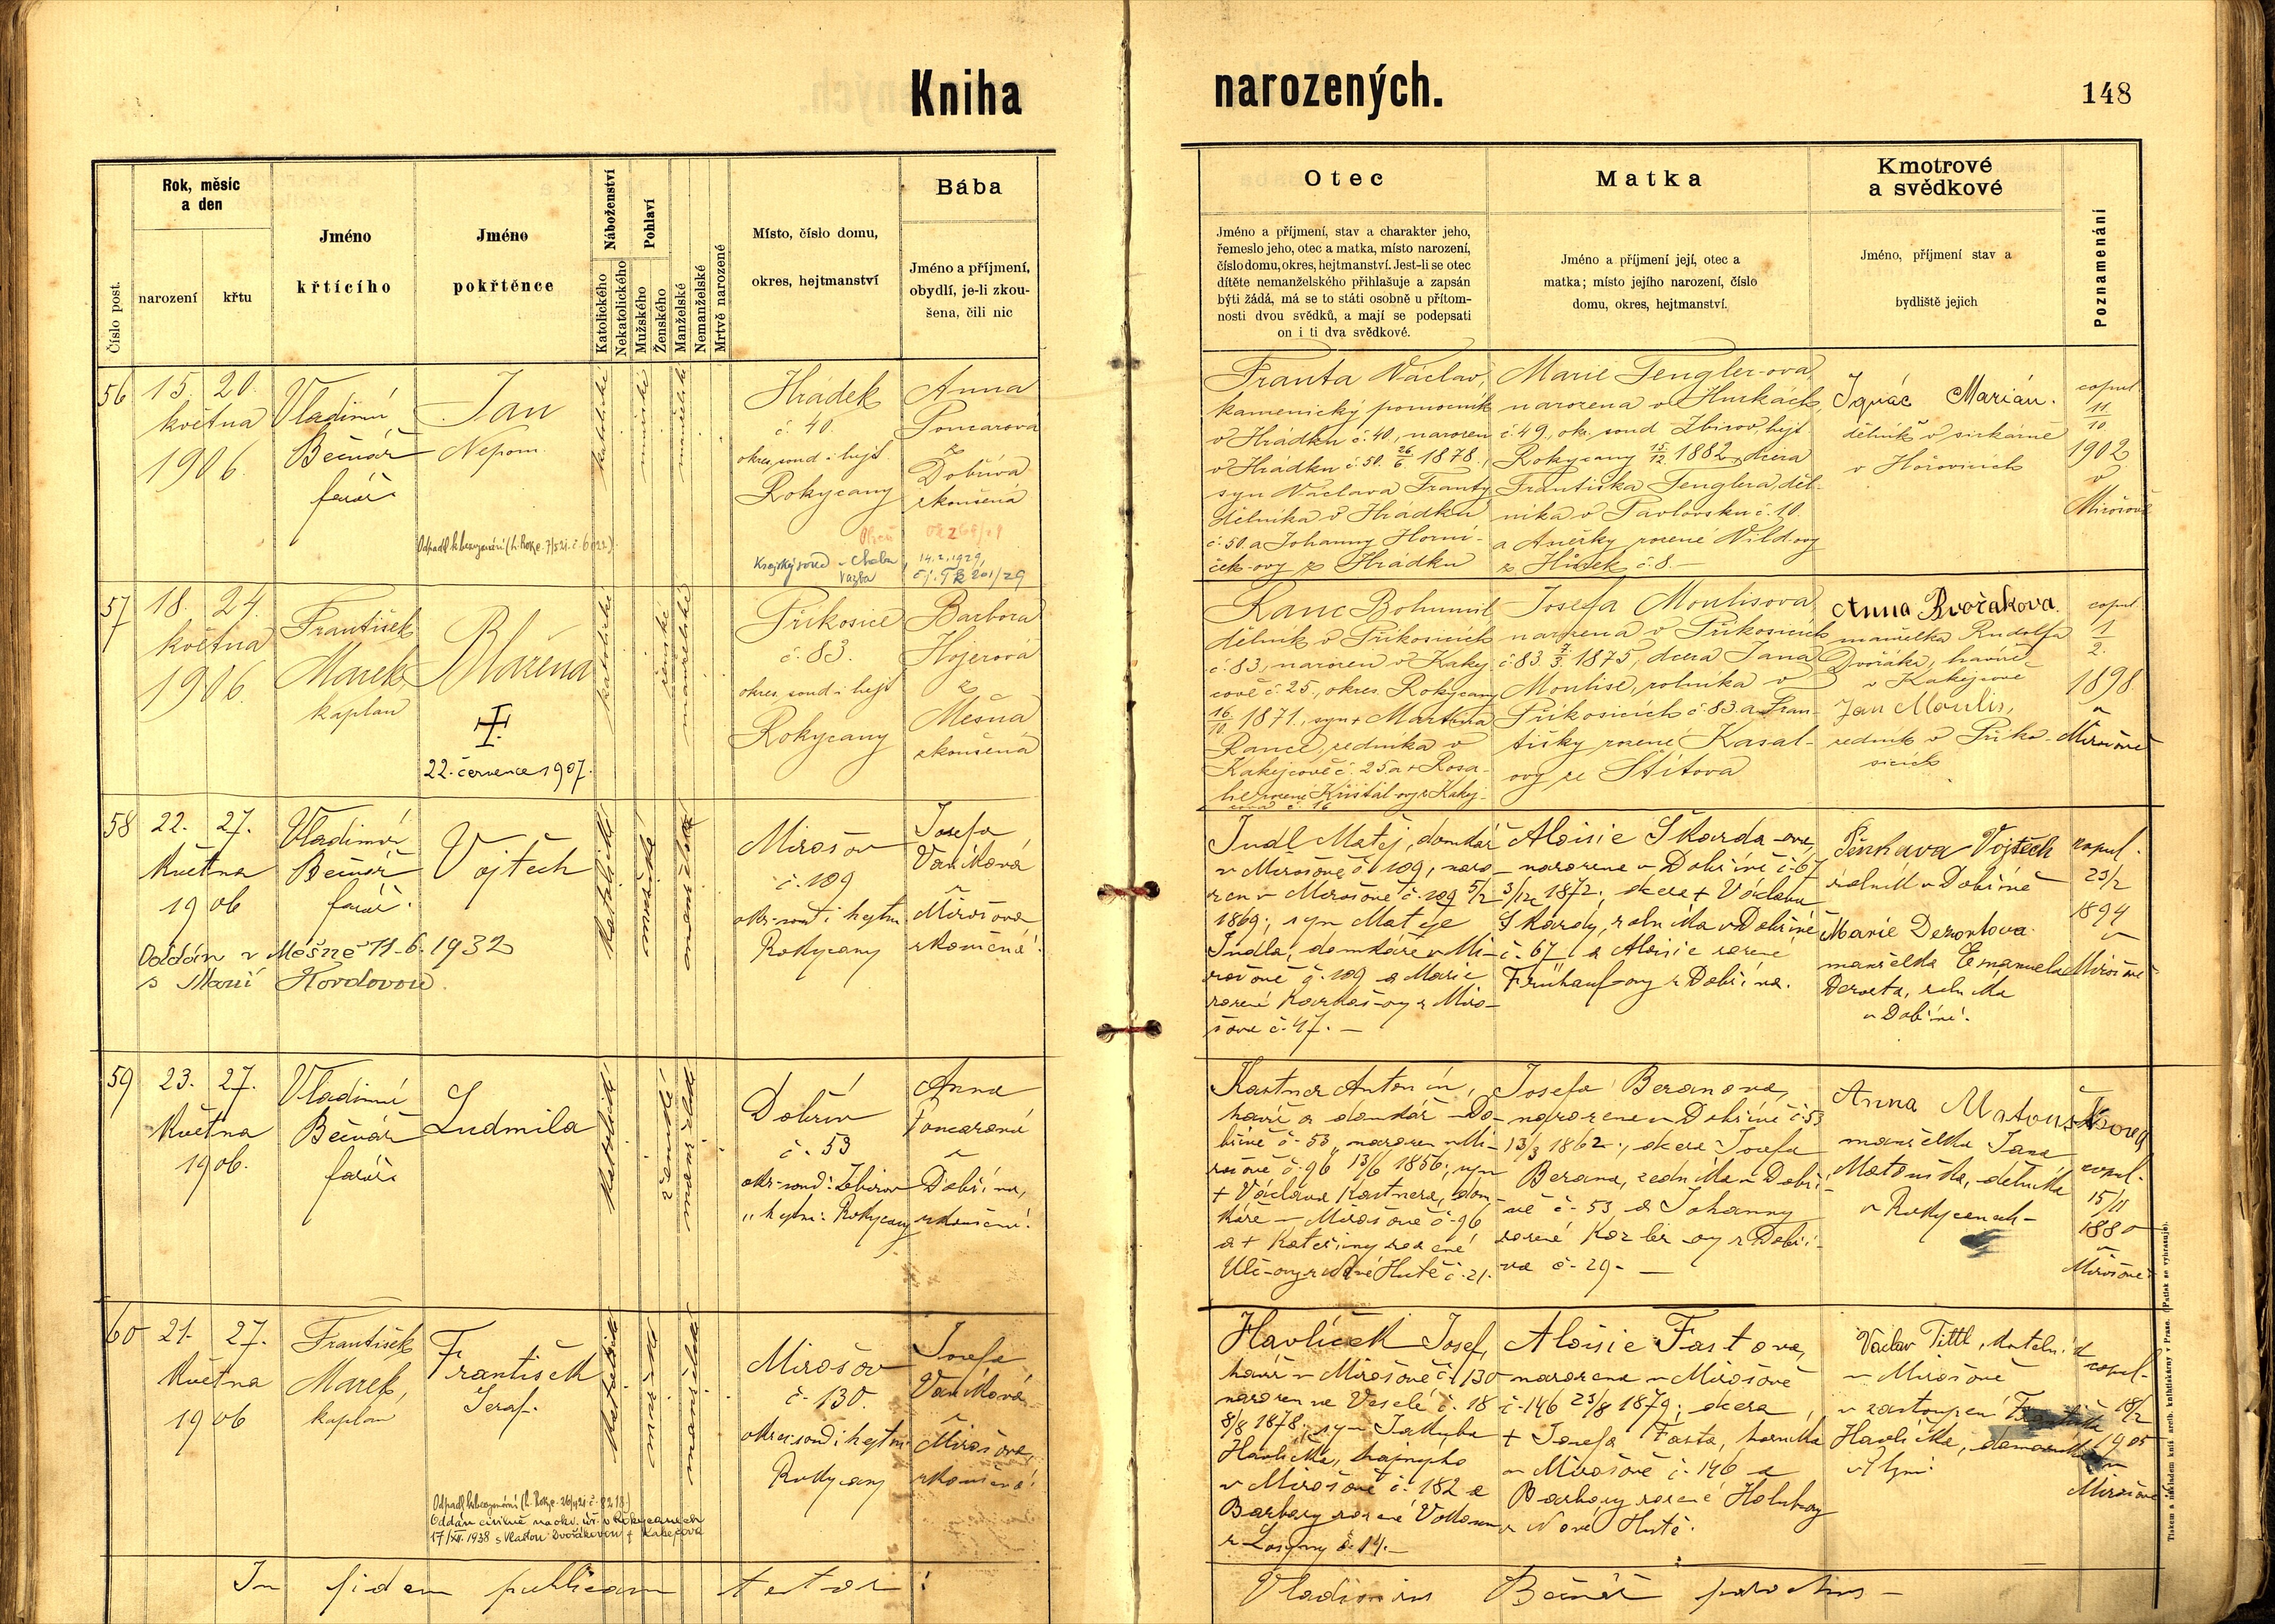 Kniha narozených.
148
Číslo post.
Rok, měsíc
a den
narození
křtu
Jméno
křtícího
Jméno
pokřtěnce
Náboženství
Katolického
Nekatolického
Pohlaví
Mužského
Ženského
Manželské
Nemanželské
Mrtvě narozené
Místo, číslo domu,
okres, hejtmanství
Bába
Jméno a příjmení,
obydlí, je-li zkou-
šena, čili nic
Otec
Jméno a příjmení, stav a charakter jeho,
řemeslo jeho, otec a matka, místo narození,
číslo domu, okres, hejtmanství. Jest-li se otec
dítěte nemanželského přihlašuje a zapsán
býti žádá, má se to státi osobně u přítom-
nosti dvou svědků, a mají se podepsati
on i ti dva svědkové.
Matka
Jméno a příjmení její, otec a
matka; místo jejího narození, číslo
domu, okres, hejtmanství.
Kmotrové
a svědkové
Jméno, příjmení stav a
bydliště jejich
Poznamenání
56
15. 20.
května
1906.
Vladimír
Bečvář
farář
Jan
Nepom.
Odpadl k bezvyznání
katolické
mužské
manželské
Hrádek
č. 40.
okres. soud i hejt.
Rokycany
Anna
Poncarová
z
Dobříva
zkoušená
Krajský soud v Chebu
Vazba
14.2.1929,
Franta Václav,
kamenický pomocník
v Hrádku č. 40, narozen
v Hrádku č. 50. 26/6 1878.,
syn Václava Franty
dělníka v Hrádku
č. 50. a Johanny Horní-
ček-ovy z Hrádku
Marie Fengler-ova,
narozena v Hůrkách,
č. 49., okr. soud Zbirov, hejt.
Rokycany 15/12 1882, dcera
Františka Fenglera, děl-
níka v Pavlovsku č. 10.
a Anežky rozené Vildovy
z Hůrek č. 8. —
Ignác Marián.
dělník v sirkárně
v Hořovicích
copul.
11/10.
1902
v
Mirošově
57
18. 24.
května
1906.
František
Marek,
kaplan
Blažena
22. července 1907.
katolické
ženské
manželské
Příkosice
č. 83.
okres. soud i hejt.
Rokycany
Barbora
Hojerová
z
Měšna
zkoušená
Ranc Bohumil
dělník v Příkosicích
č. 83, narozen v Kakej-
cově č. 25., okres. Rokycany
16/10. 1871., syn + Martina
Rance, sedníka v
Kakejcově č. 25 a + Rosa-
lie rozené Křišťál-ovy z Kakej-
cova č. 16
Josefa Moulisova,
narozena v Příkosicích
č. 83. 7/3. 1875, dcera Jana
Moulise, rolníka v
Příkosicích č. 83. a Fran-
tišky rozené Kasal-
ovy ze Štítova
Anna Dvořakova.
manželka Rudolfa
Dvořáka, havíře
v Kakejcově
Jan Moulis,
sedník v Příko-
sicích
copul.
1/2.
1898.
v
Mirošově
58
22. 27.
Května
1906
Vladimír
Bečvář
farář.
Vojtěch
Oddán v Měšně 11.-6. 1932
s Marií Kordovou.
katolické
mužské
manželské
Mirošov
č. 109
okr. soud i hejtm.
Rokycany
Josefa
Vaníková
Mirošova
zkoušená.
Indl Matěj, domkář
v Mirošově č. 109, naro-
zen v Mirošově č. 109 5/2
1869; syn Matěje
Indla, domkáře v Mi-
rošově č. 109 a Marie
z Miro-
šova č. 47. —
Aloisie Škarda-ova,
narozena v Dobřívě č. 67
3/12 1872; dcera + Václava
Škardy, rolníka v Dobřívě
č. 67 a Aloisie rozené
Frühauf-ovy z Dobříva.
Vojtěch
rolník v Dobřívě
Marie
manželka Emanuela
rolníka
v Dobřívě.
copul.
23/2
1894
v
Mirošově
59
23. 27.
Května
1906.
Vladimír
Bečvář
farář
Ludmila
katolické
ženské
manželské
Dobřív
č. 53
okr. soud: Zbirov
" hejtm: Rokycany
Anna
Poncarová
z
Dobříva,
zkoušená.
Kastner Antonín,
havíř a domkář v Do-
břívě č. 53, narozen v Mi-
rošově č. 96 13/6 1856; syn
+ Václava Kastnera, dom-
káře v Mirošově č. 96
a + Kateřiny rozené
Hutě č. 21.
Josefa Beranova,
narozena v Dobřívě č. 53
13/3 1862; dcera Josefa
Berana, zedníka v Dobří-
vě č. 53 a Johanny
rozené z Dobří-
va č. 29. —
Anna Matouškova
manželka Jana
Matouška, dělníka
v Rokycanech
copul.
15/11
1880
v
Mirošově
60
21. 27.
Května
1906
František
Marek,
kaplan
František
Seraf.
Odpadl k bezvyznání
Oddán civilně na okr. úř. v Rokycanech
17/XII. 1938 s Vlastou Dvořákovou z Kakejcova
katolické
mužské
manželské
Mirošov
č. 130.
okres. soud i hejtm.
Rokycany
Josefa
Vaníková
Mirošova
zkoušená.
Havlíček Josef,
havíř v Mirošově č. 130
narozen ve Veselé č. 18
8/8 1878; syn Jakuba
Havlíčka, hajného
v Mirošově č. 182 a
Barbory rozené
z Losyny č. 14. —
Aloisie Fastova,
narozena v Mirošově
č. 146 23/8 1879; dcera
+ Josefa Fasta, horníka
v Mirošově č. 146 a
Barbory rozené Holubovy
z Nové Hutě.
Václav Tittl,
v Mirošově
v zastoupení Františka
Havlíčka,
v Plzni.
copul.
18/2
1905
v
Mirošově
In fidem publicam testor:
Vladimirus Bečvář parochus —
Tiskem a nákladem kníž. arcib. knihtiskárny v Praze. (Patisk se vyhrazuje).